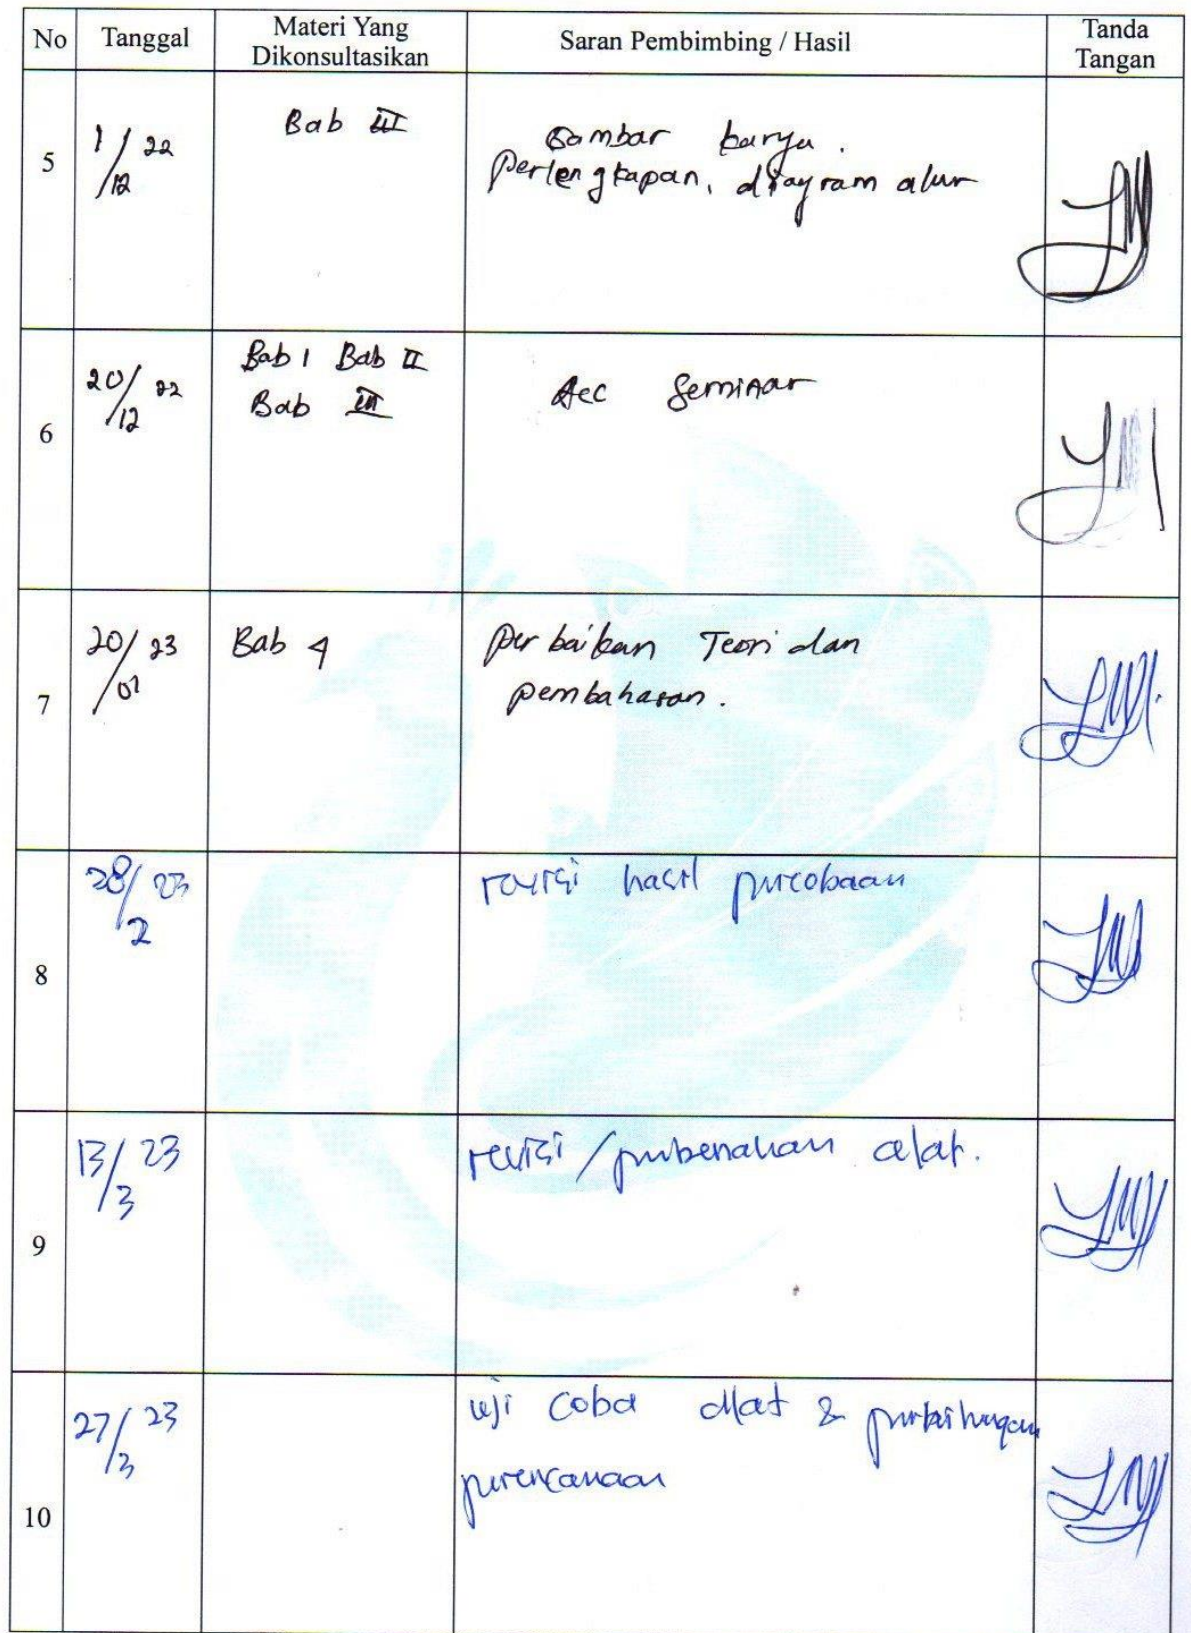 No Tanggal Materi Yang Dikonsultasikan Saran Pembimbing / Hasil Tanda Tangan
5 1/12 22 Bab III Gambar karya.
Perlengkapan, diagram alur
6 20/12 22 Bab I Bab II
Bab III Acc Seminar
7 20/01 23 Bab 4 perbaikan Teori dan
pembahasan.
8 28/2 23 revisi hasil percobaan
9 13/3 23 revisi / pembenahan alat.
10 27/3 23 uji coba alat &
perencanaan